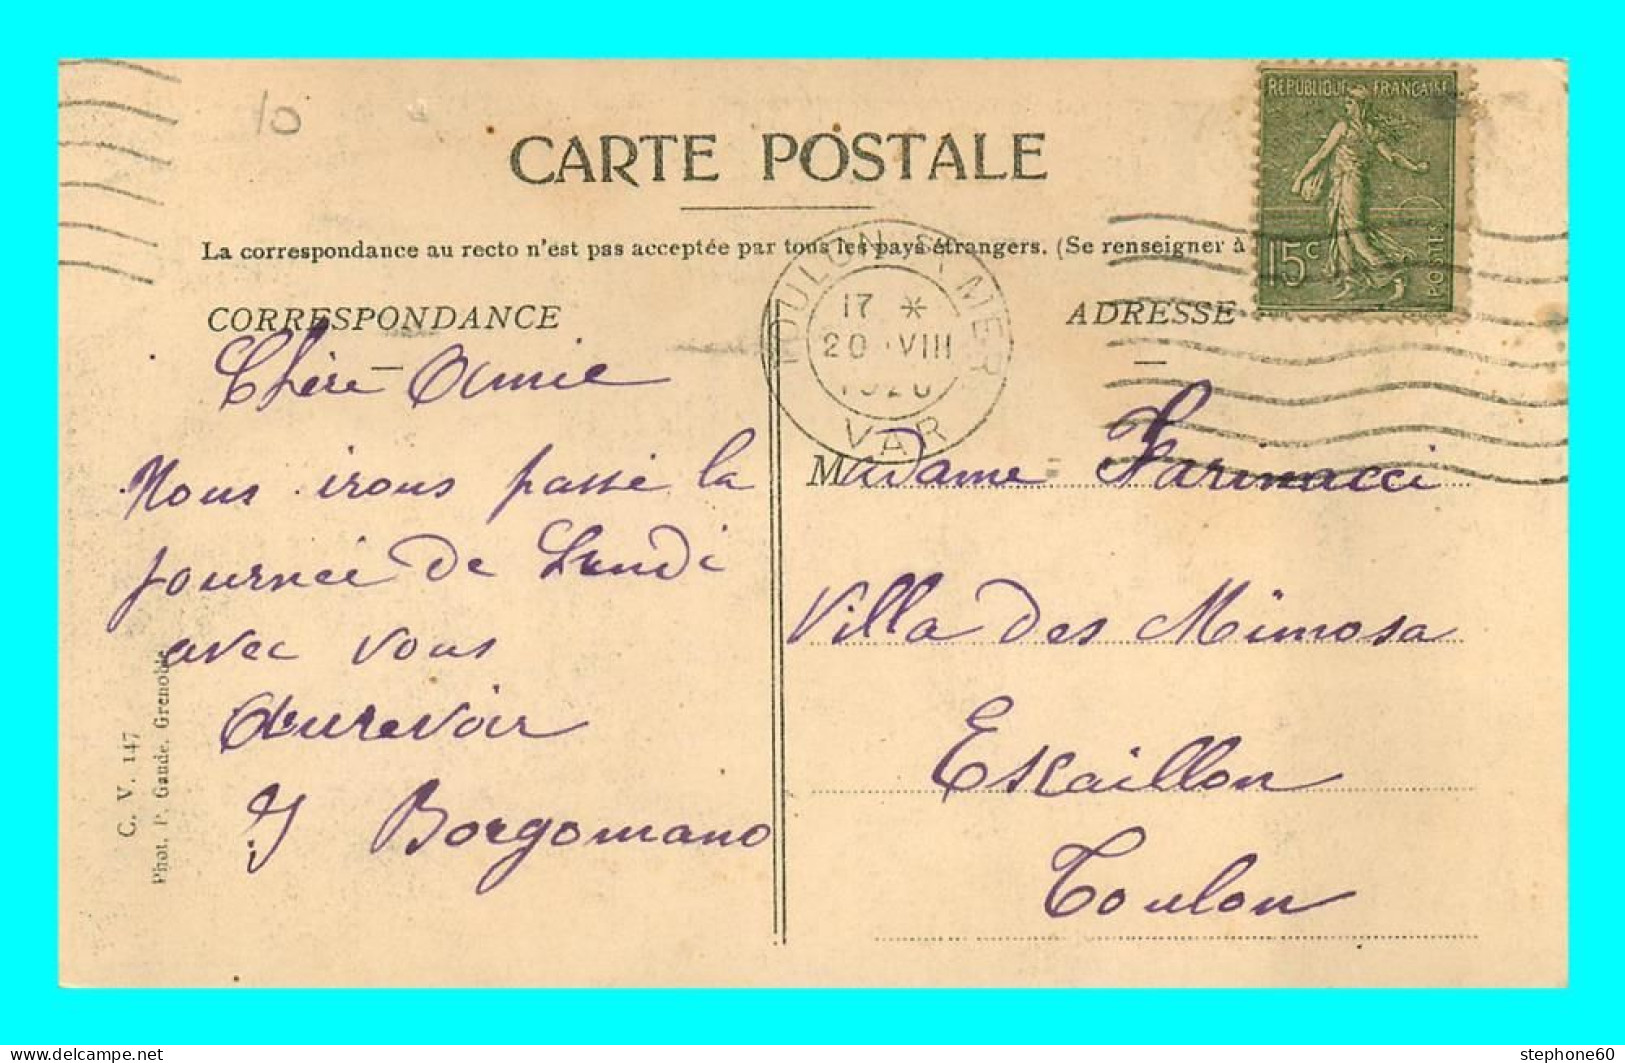 10
CARTE POSTALE
La correspondance au recto n'est pas acceptée par tous les pays étrangers. (Se renseigner à
RÉPUBLIQUE FRANÇAISE
15c
POSTES
TOULON S/ MER
17 *
20 VIII
1920
VAR
CORRESPONDANCE
Chère Amie
Nous irons passé la
journée de Lundi
avec vous
Aurevoir
Borgomano
ADRESSE
Madame Farinacci
Villa des Mimosa
Escaillon
Toulon
C. V. 147
Phot. P. Gaude, Grenoble
delcampe.net
stephone60